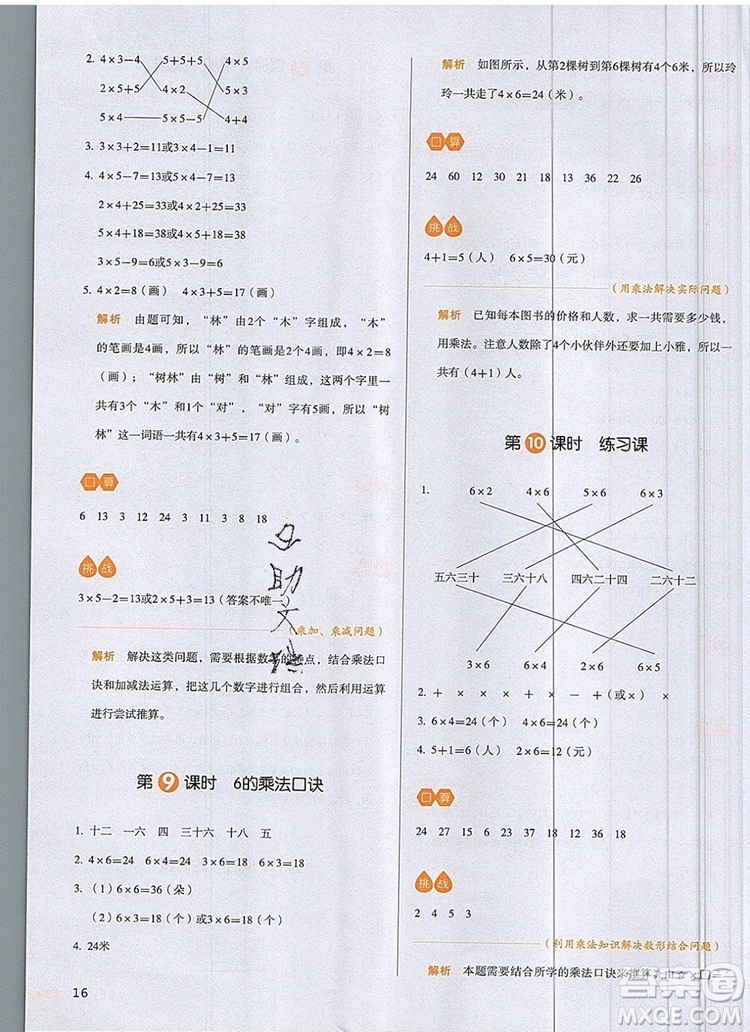 2. 4×3−4 5+5+5 4×5
2+2+2+2 4×2 5×3
5×4 5×5−5 4+4
3. 3×3+2=11或3×4−1=11
4. 2×4+5=13 4×5−7=13
2×4+25=33 4×2+25=33
5×4+18=38 4×5+18=38
3×5−9=6 5×3−9=6
5. 4×2=8(画) 4×3+5=17(画)
解析 由题可知，“林”由2个“木”字组成，“木”
的笔画是4画，所以“林”的笔画是2个4画，即4×2=8
(画)；“树林”由“树”和“林”组成，这两个字里一
共有3个“木”和1个“对”，“对”字有5画，所以“树
林”这一词语一共有4×3+5=17(画)。
口算
6 13 3 12 24 3 11 3 8 18
挑战
3×5−2=13或2×5+3=13(答案不唯一)
(乘加、乘减问题)
解析 解决这类问题，需要根据数字的特点，结合乘法口
诀和加减法运算，把这几个数字进行组合，然后利用运算
进行尝试推算。
第9课时 6的乘法口诀
1. 十二 一六 四 三十六 十八 五
2. 4×6=24 6×4=24 3×6=18 6×3=18
3. (1)6×6=36(朵)
(2)6×3=18(个)或3×6=18(个)
4. 24米
16
解析 如图所示，从第2棵树到第6棵树有4个6米，所以玲
玲一共走了4×6=24(米)。
口算
24 60 12 30 30 18 36 22 26
挑战
4+1=5(人) 6×5=30(元)
(用乘法解决实际问题)
解析 已知每本图书的价格和人数，求一共需要多少钱，
用乘法。注意人数除了4个小伙伴外还要加上小雅，所以一
共有(4+1)人。
第10课时 练习课
1. 6×2 4×6 5×6 6×3
五六三十 三六十八 四六二十四 二六十二
3×6 6×4 2×6 6×5
2. + × × + × − +(或×) ×
3. 6×4=24(个) 4×6=24(个)
4. 5+1=6(人) 5×6=30(元)
口算
24 27 15 11 30 18 30 12 36 18
挑战
2 4 5 3
(利用乘法知识解决数形结合问题)
解析 本题需要结合所学的乘法口诀来推算，由☆×□=
答案圈
MXQE.COM